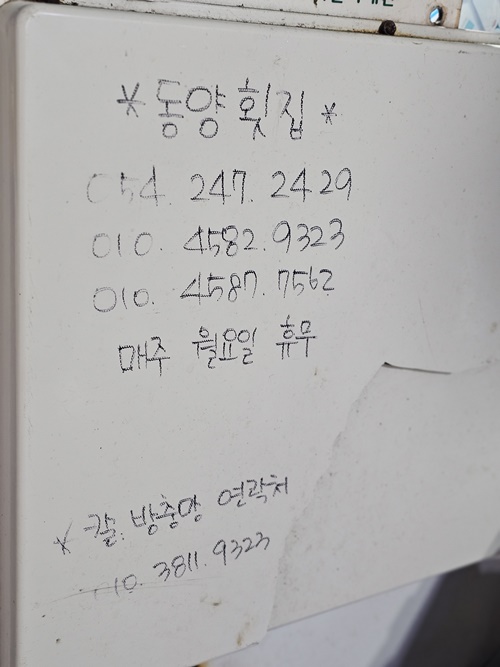 *동양횟집*
054. 247. 2429
010. 4582. 9323
010. 4587. 7562
매주 월요일 휴무
* 칼. 방충망 연락처
010. 3811. 9323